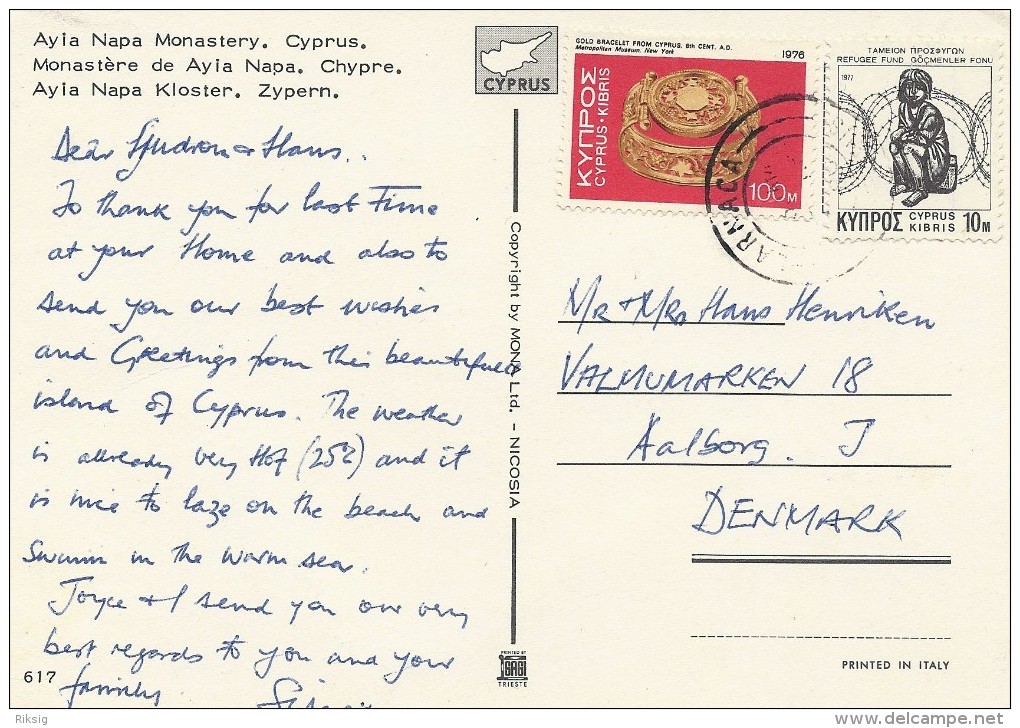 Ayia Napa Monastery. Cyprus.
Monastère de Ayia Napa. Chypre.
Ayia Napa Kloster. Zypern.
CYPRUS
GOLD BRACELET FROM CYPRUS, 6th CENT. A.D.
Metropolitan Museum, New York
1976
ΚΥΠΡΟΣ
CYPRUS·KIBRIS
100M
ΤΑΜΕΙΟΝ ΠΡΟΣΦΥΓΩΝ
REFUGEE FUND GÖÇMENLER FONU
1977
ΚΥΠΡΟΣ CYPRUS KIBRIS 10M
LARNACA
Dear & Hans..
To thank you for last Time
at your Home and also to
send you our best wishes
and Greetings from this beautifull
island of Cyprus. The weather
is allready very Hot (25°) and it
is nice to laze on the beach and
Swimm in the warm sea.
Joyce & I send you our very
best regards to you and your
family
Copyright by MONA Ltd. - NICOSIA
Mr & Mrs Hans Henriken
VALMUMARKEN 18
Aalborg. J
DENMARK
617
PRINTED BY
SAGI
TRIESTE
PRINTED IN ITALY
Riksig
delcampe.net